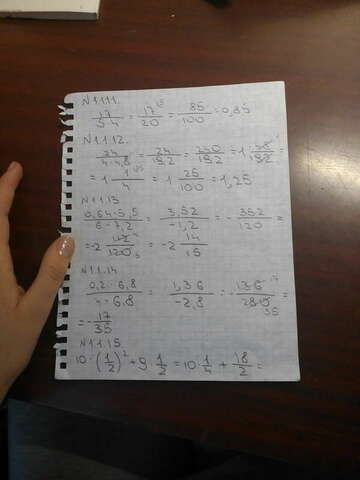 N 1.1.11.
17/5·4 = 17/20 = 85/100 = 0,85
N 1.1.12.
24/4·4,8 = 24/19,2 = 240/192 = 1 48/192 =
= 1 1/4 = 1 25/100 = 1,25
N 1.1.13
0,64·5,5/6-7,2 = 3,52/-1,2 = - 352/120 =
= -2 112/120 = -2 14/15
N 1.1.14
0,2·6,8/4-6,8 = 1,36/-2,8 = -136/280 =
= - 17/35
N 1.1.15
10·(1/2)² + 9·1/2 = 10·1/4 + 18/2 =